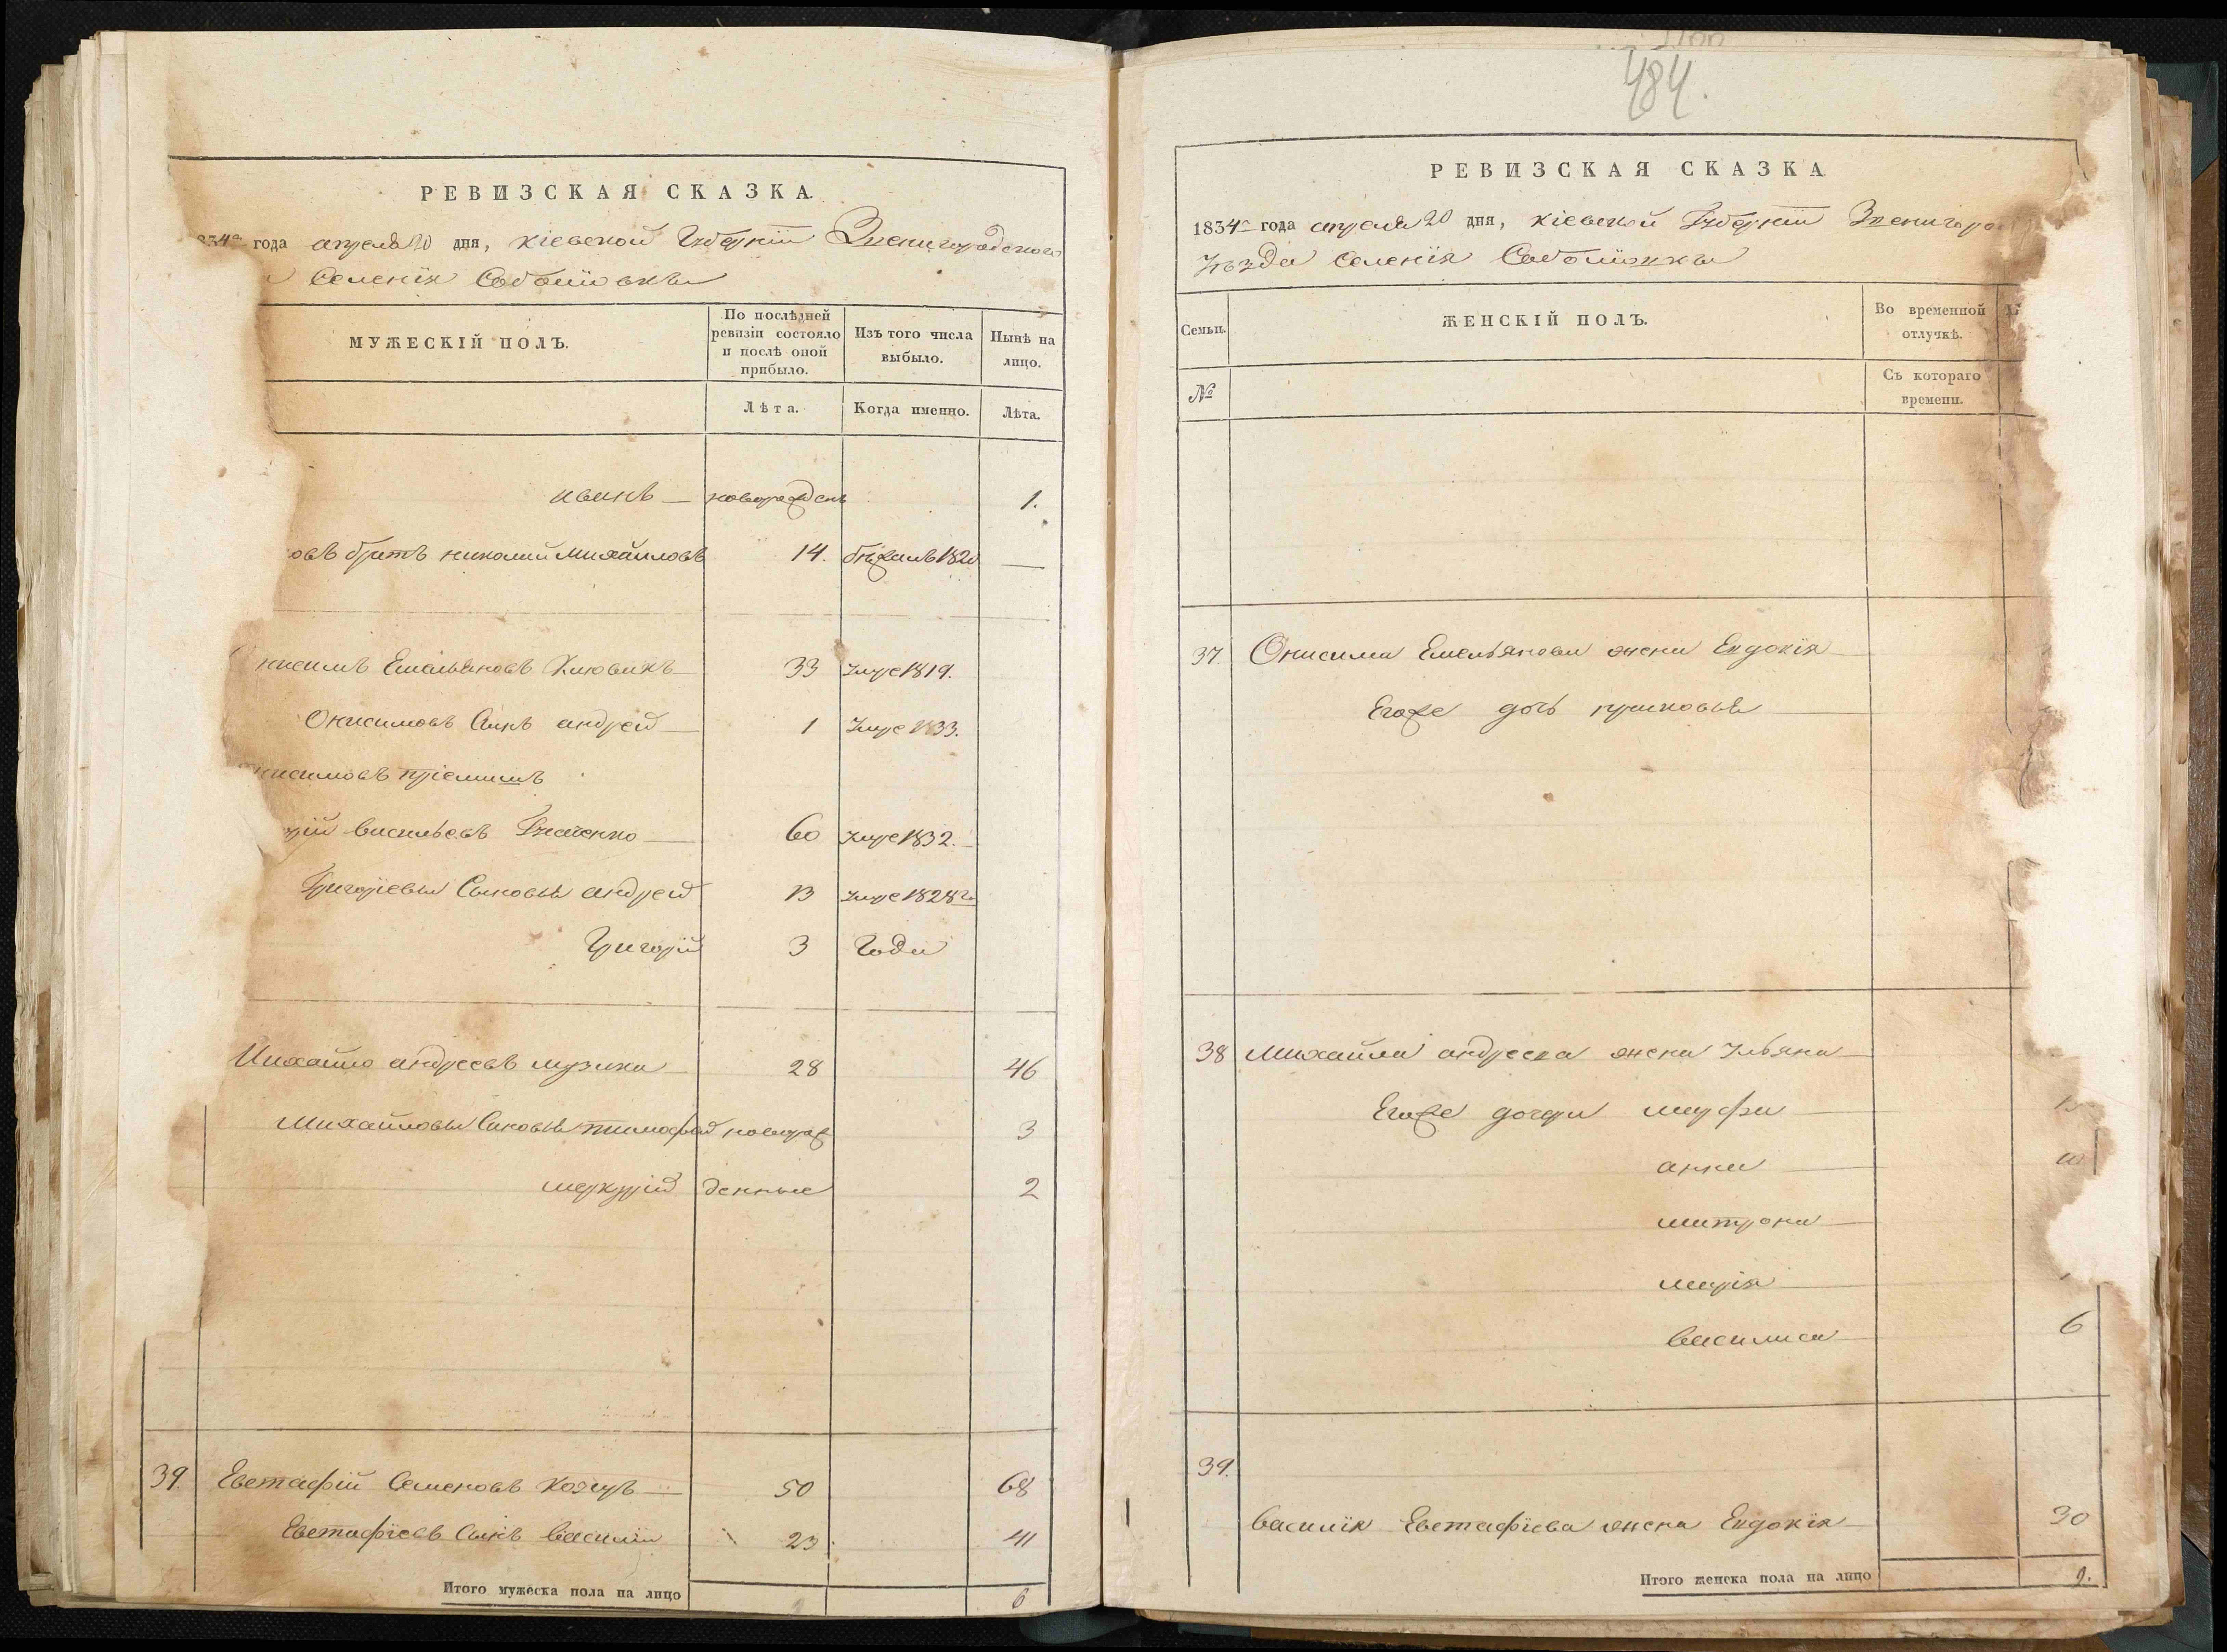 РЕВИЗСКАЯ СКАЗКА.
834го года апреля 20 дня, Кіевской Губерніи Звенигородского
Селенія Соболювки
МУЖЕСКІЙ ПОЛЪ.
По послѣдней ревизіи состояло и послѣ оной прибыло.
Изъ того числа выбыло.
Нынѣ на лицо.
Лѣта.
Когда именно.
Лѣта.
иванъ — новорожденъ 1.
овъ братъ николай Михайловъ 14. бѣжалъ 1820 —
нисимъ Емельяновъ 33 Умре 1819.
Онисимовъ Сынъ андрей — 1 Умре 1833.
нисимовъ пріемышъ
рій васильевъ 60 Умре 1832.
Григоріевы Сыновья андрей 13 Умре 1828го
Григорій 3 Года
Михайло андреевъ музыка 28 46
Михайловы Сыновья тимофей новорож 3
меркурій денные 2
39. Евстафій Семеновъ Кожуъ — 50 68
Евстафіевъ Сынъ василій 23. 41
Итого мужеска пола на лицо 6
484.
РЕВИЗСКАЯ СКАЗКА
1834го года апреля 20 дня, Кіевской Губерніи Звенигоро
Уѣзда Селенія Соболювки
Семьи.
ЖЕНСКІЙ ПОЛЪ.
Во временной отлучкѣ.
№
Съ котораго времени.
37. Онисима Емельянова жена Евдокія
Егоже дочь
38 Михайла андреева жена Ульяна
Егоже дочери марфа
анна
матрона
марія
василиса 6
39.
василія Евстафіева жена Евдокія 30
Итого женска пола на лицо 9.